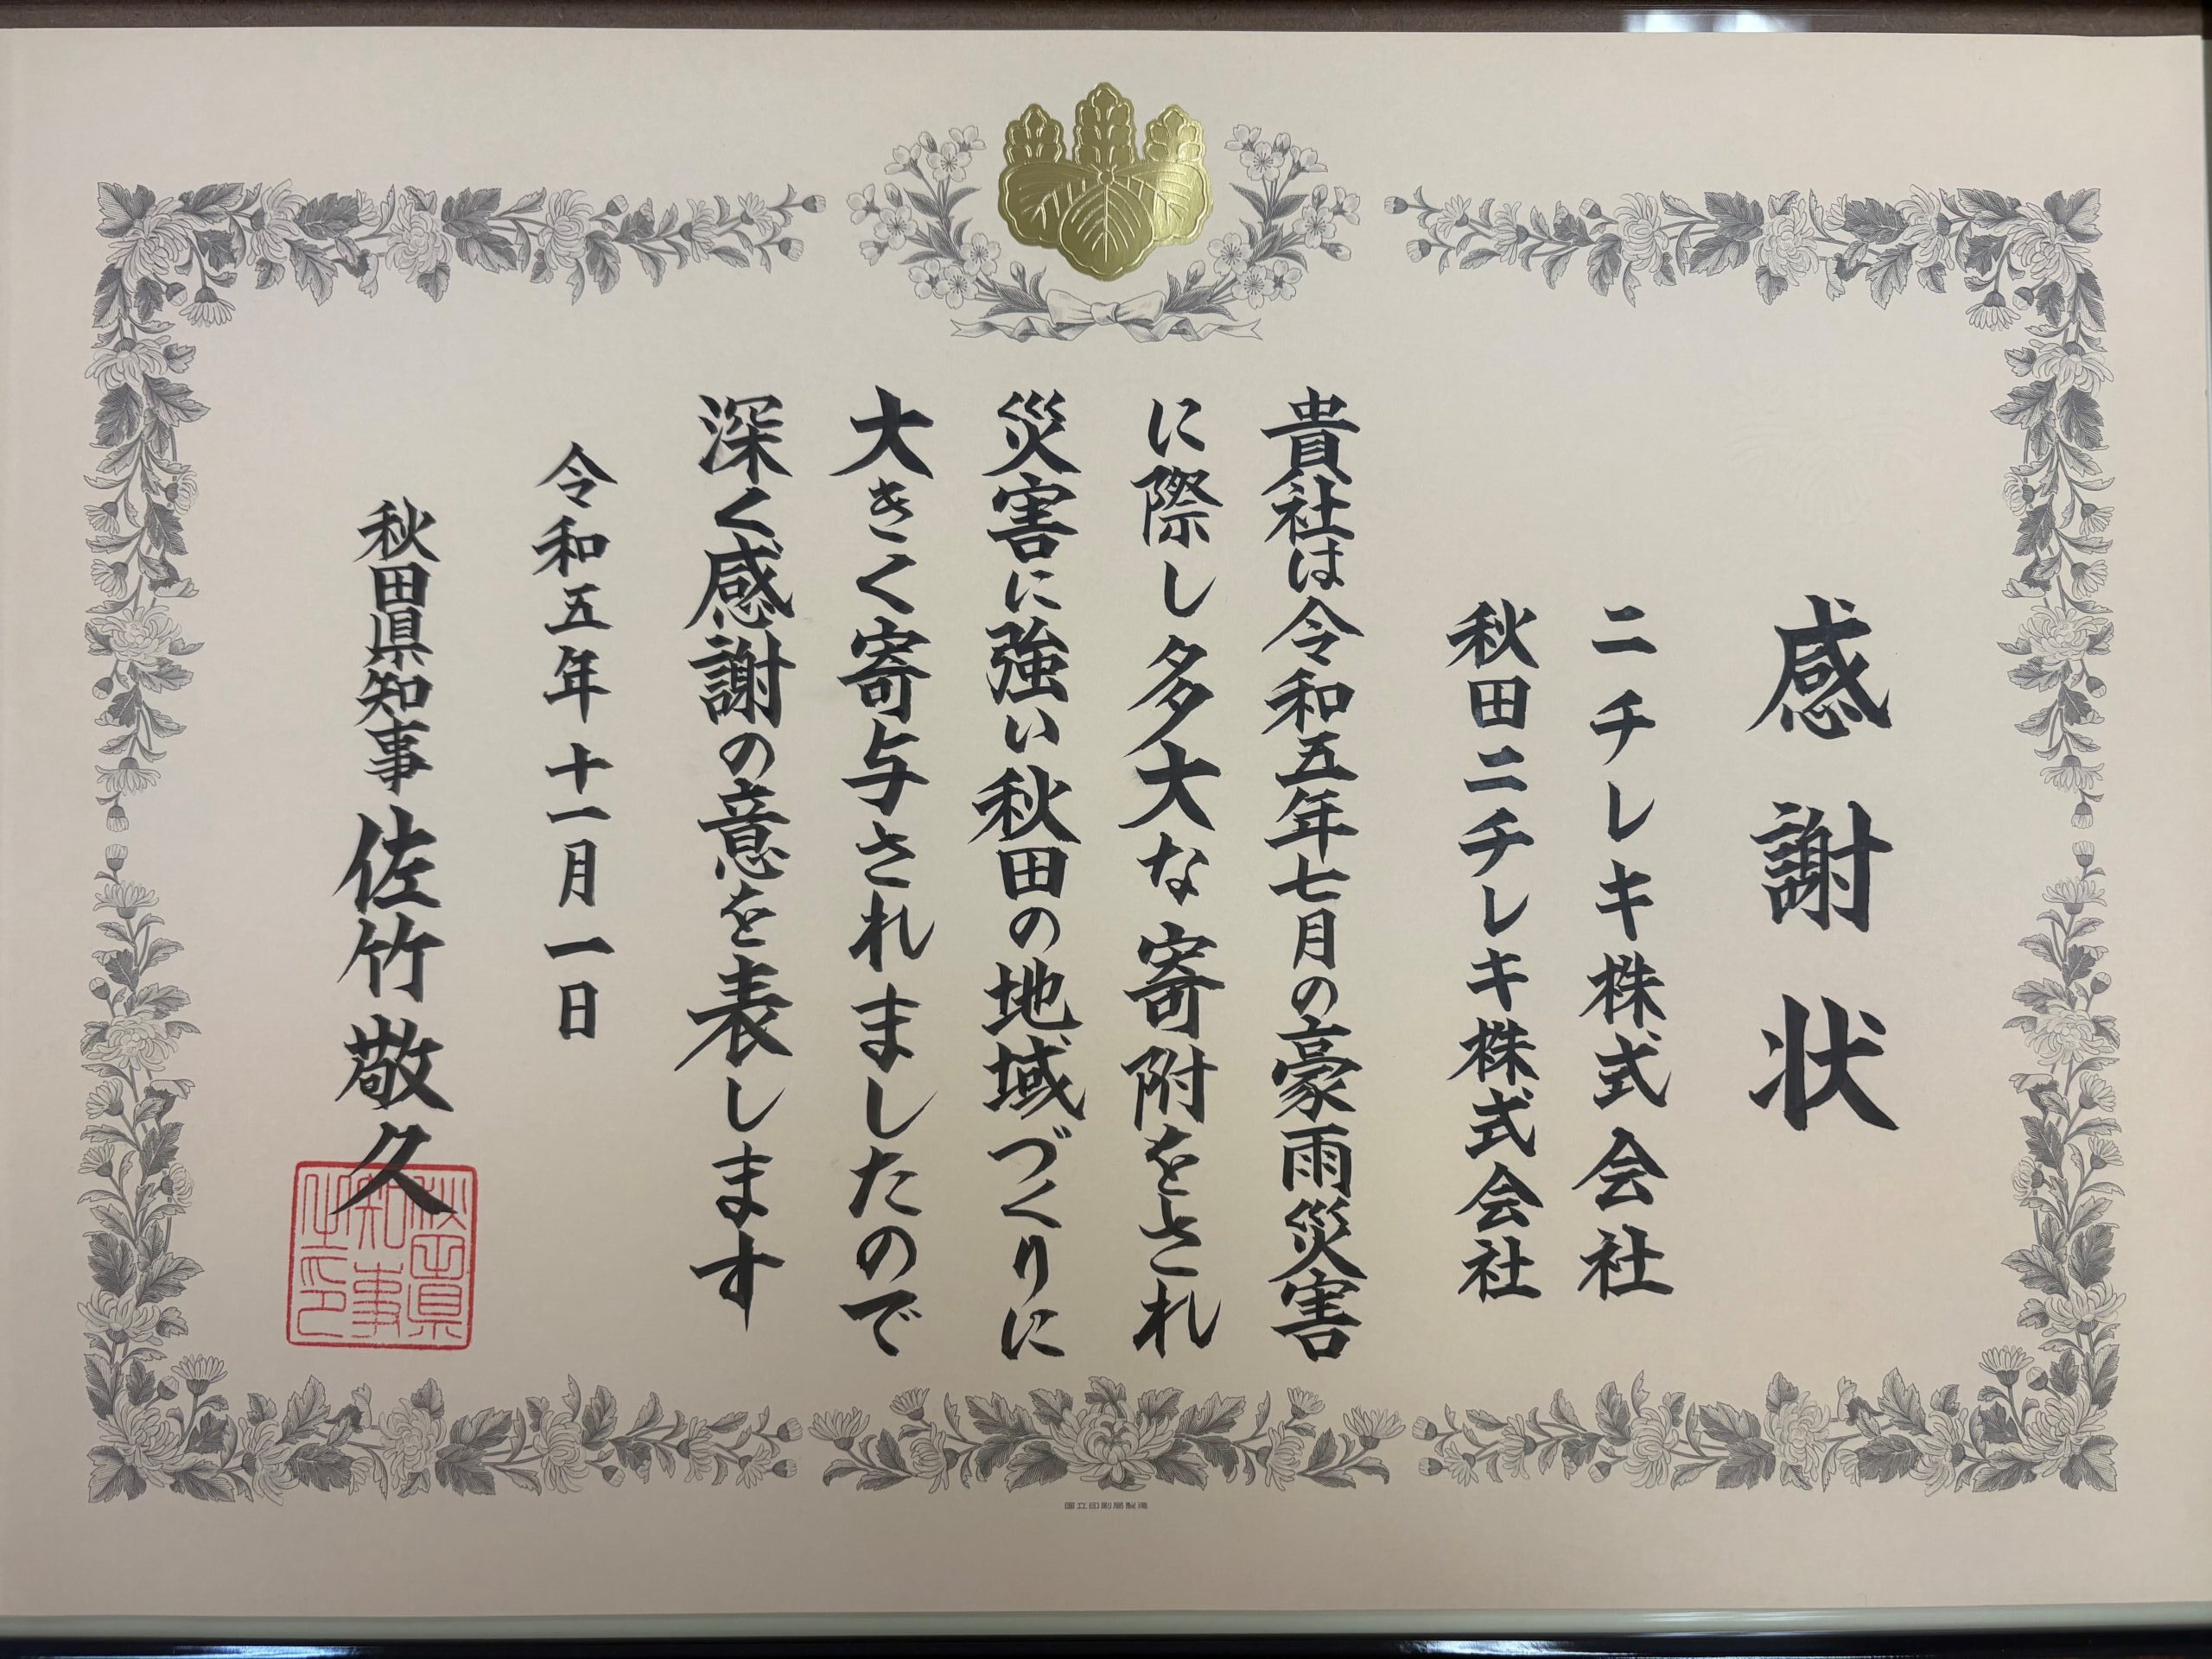 感謝状
ニチレキ株式会社
秋田ニチレキ株式会社
貴社は令和五年七月の豪雨災害
に際し多大な寄附をされ
災害に強い秋田の地域づくりに
大きく寄与されましたので
深く感謝の意を表します
令和五年十一月一日
秋田県知事 佐竹敬久
秋田県
知事
之印
国立印刷局製造